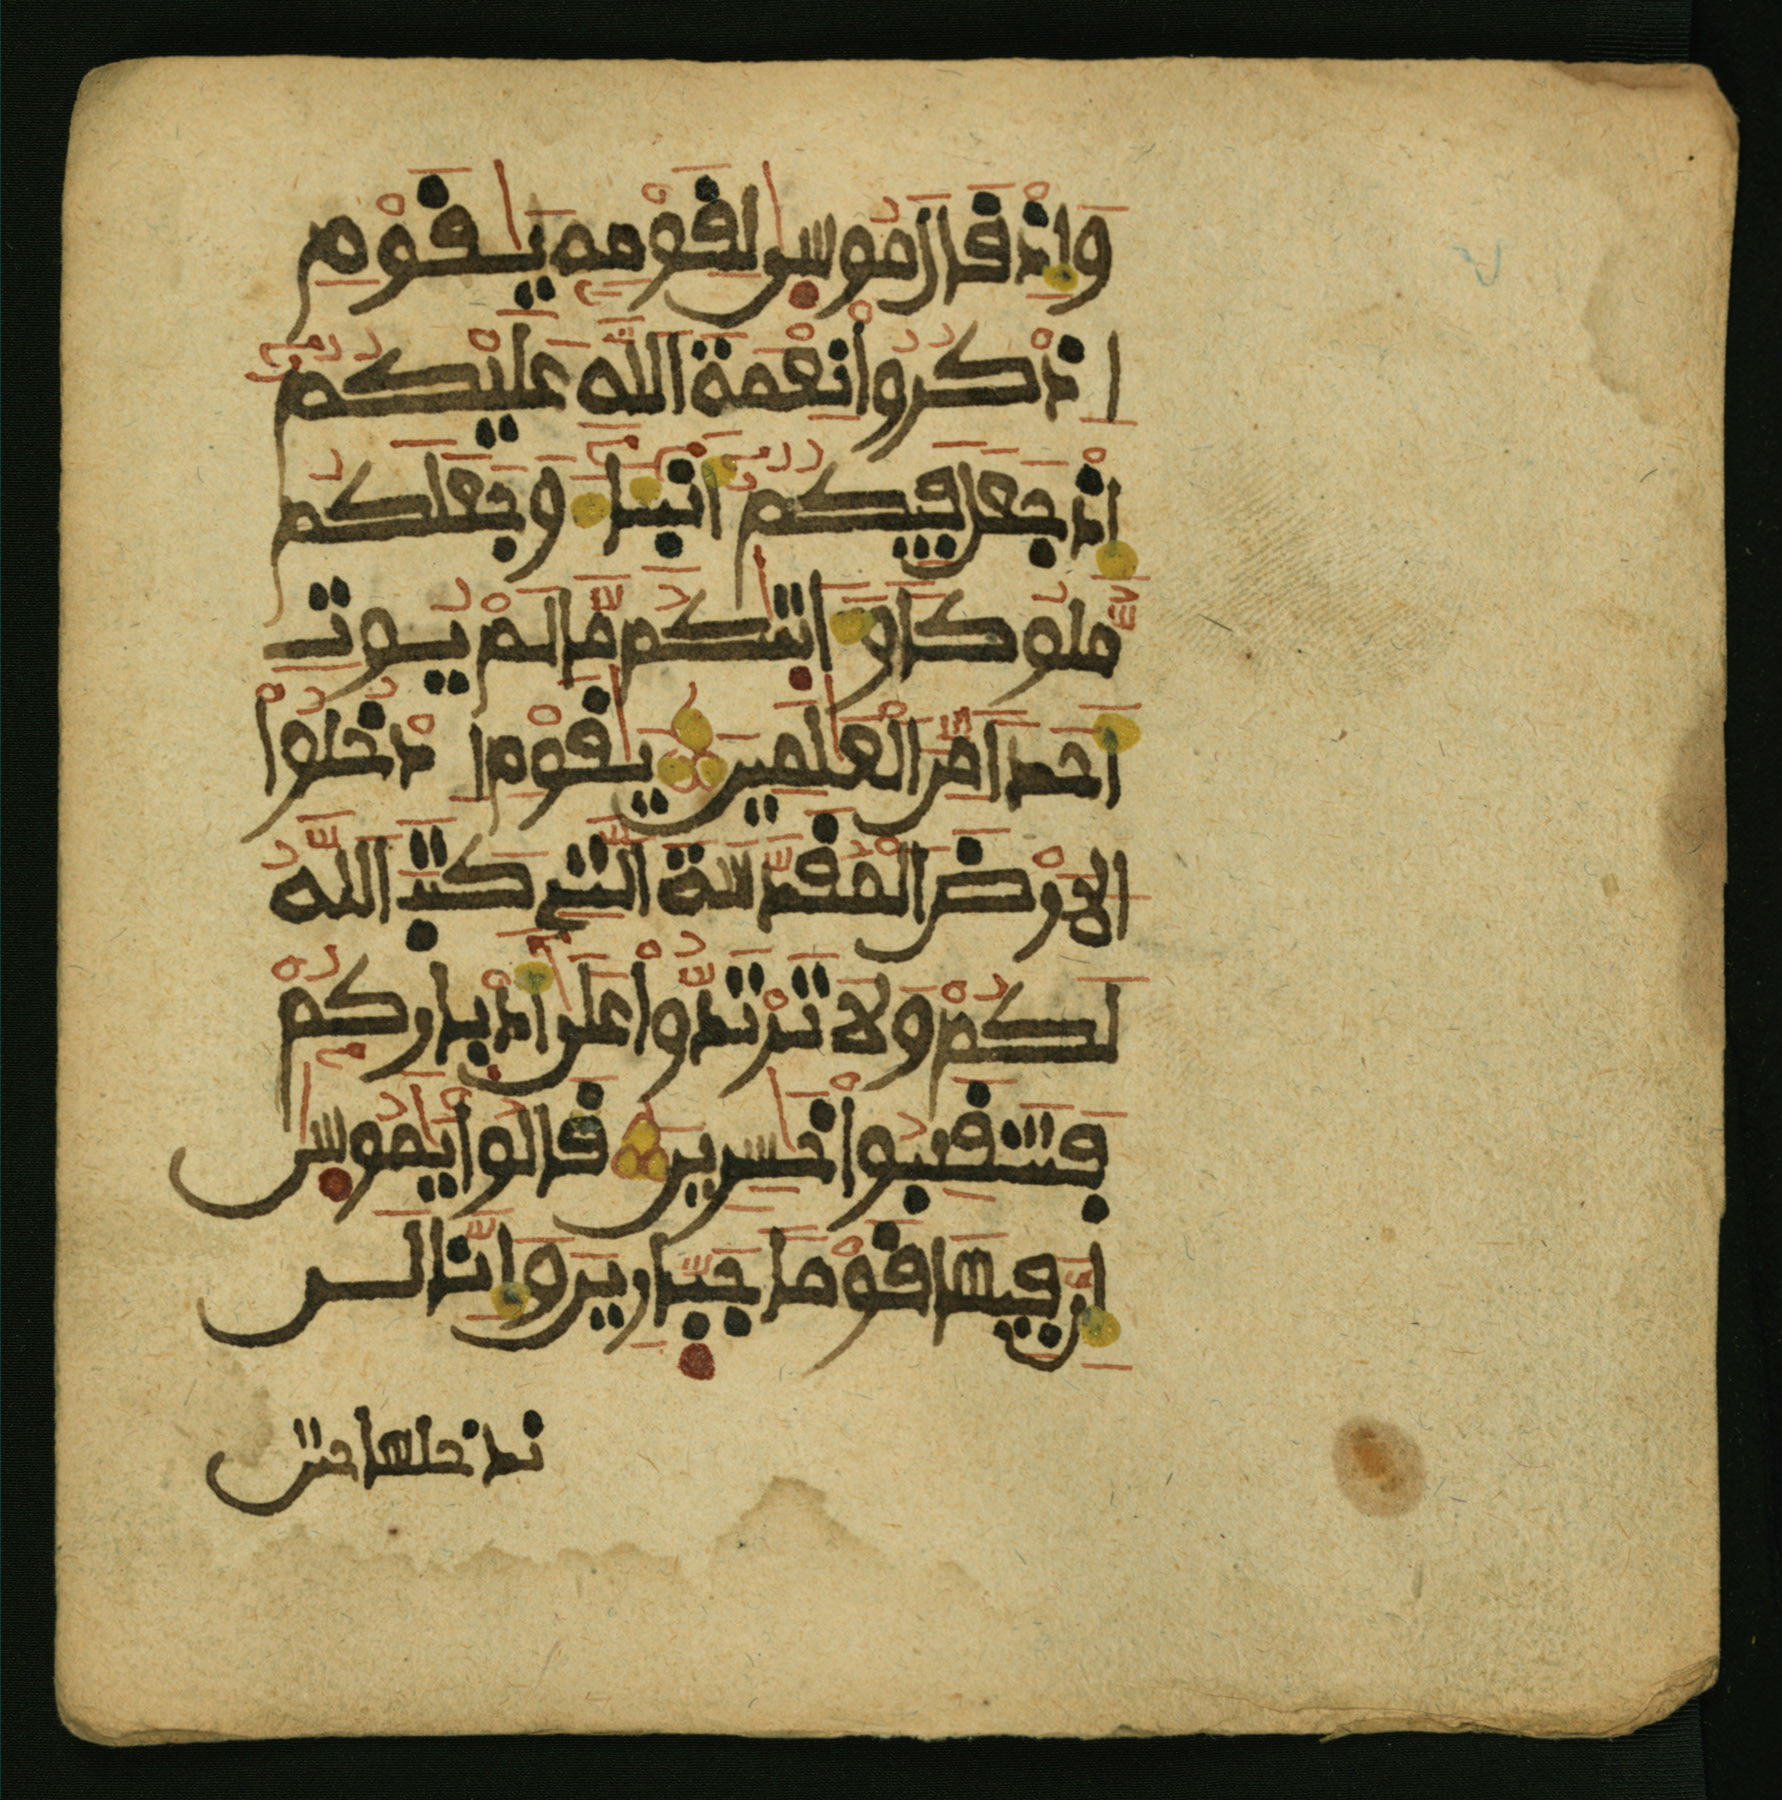 وَإِذْ قَالَ مُوسَىٰ لِقَوْمِهِ يَٰقَوْمِ
اذْكُرُواْ نِعْمَةَ اللَّهِ عَلَيْكُمُ
إِذْ جَعَلَ فِيكُمُ أَنۢبِئَآءَ وَجَعَلَكُم
مُّلُوكًا وَءَاتَىٰكُم مَّا لَمْ يُوتِ
أَحَدًا مِّنَ الْعَٰلَمِينَ يَٰقَوْمِ ادْخُلُواْ
الَارْضَ الْمُقَدَّسَةَ الَّتِي كَتَبَ اللَّهُ
لَكُمْ وَلَا تَرْتَدُّواْ عَلَىٰ أَدْبَٰارِكُمْ
فَتَنقَلِبُواْ خَٰسِرِينَ قَالُواْ يَٰمُوسَىٰ
إِنَّ فِيهَا قَوْمًا جَبَّارِينَ وَإِنَّا لَن
ندخلها حتى